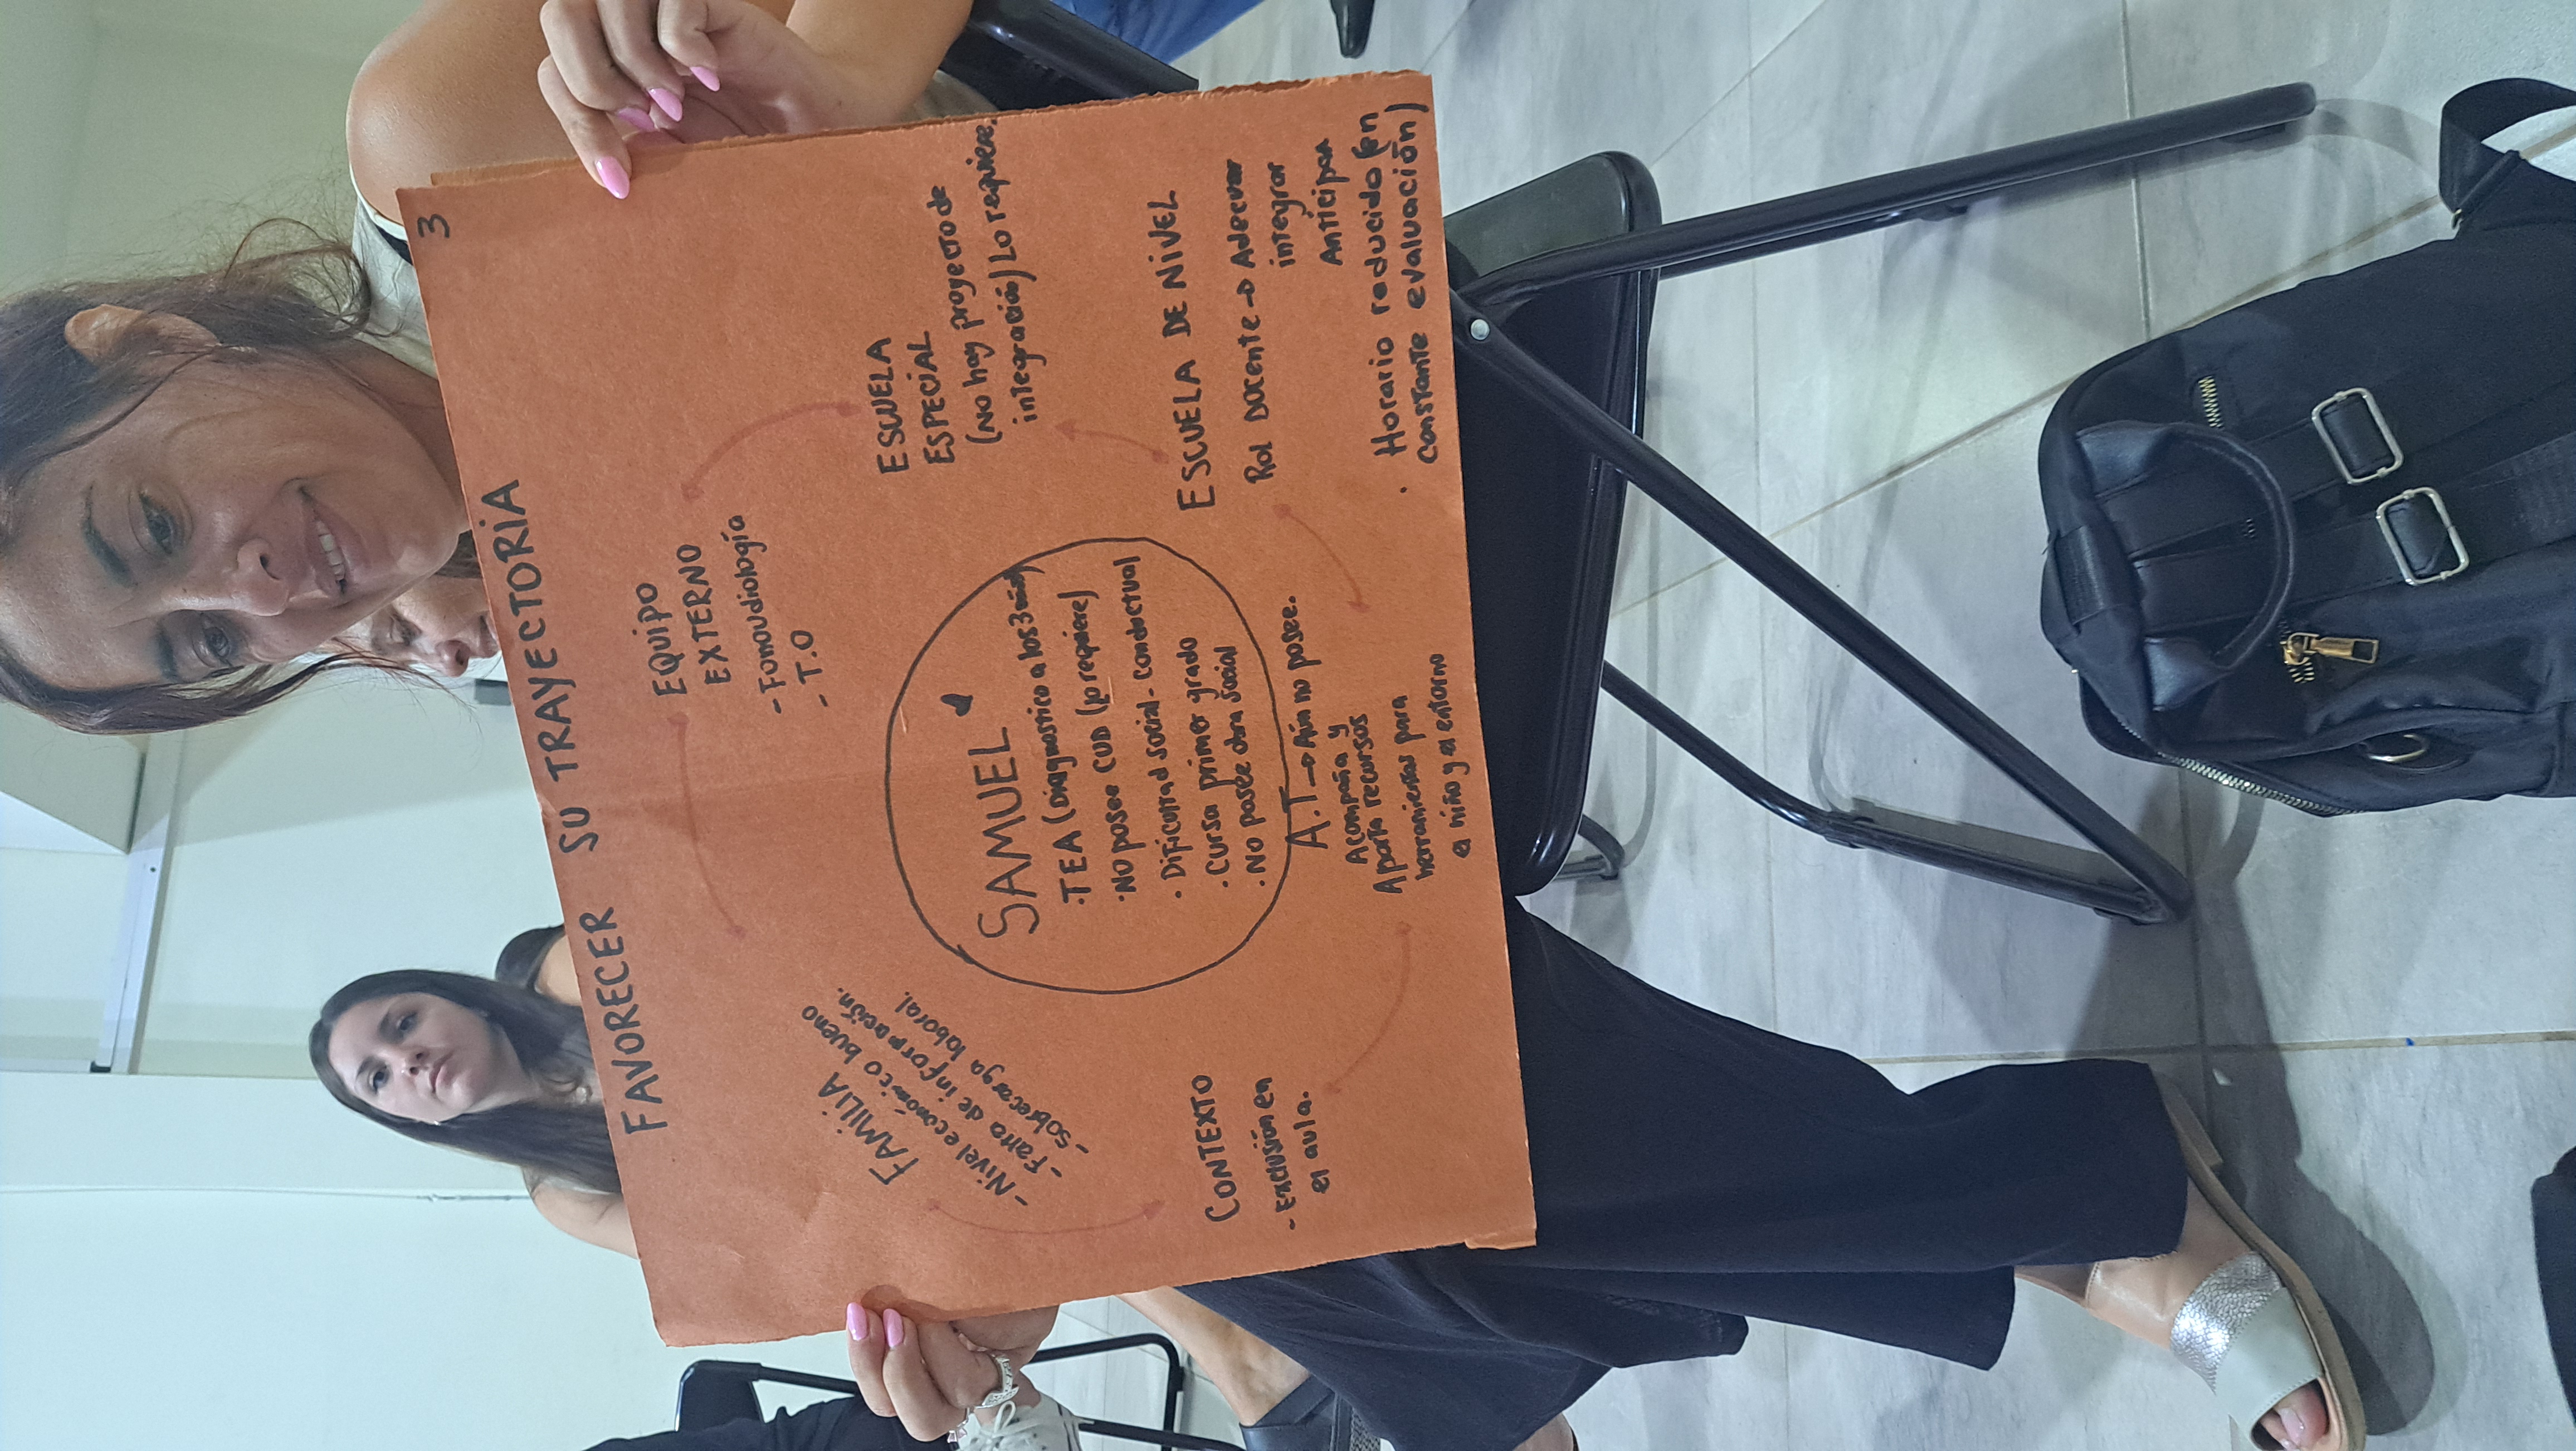 3
FAVORECER SU TRAYECTORIA
EQUIPO
EXTERNO
- Fonoudiología
- T.O
FAMILIA
- Nivel económico bueno
- Falta de información.
- Sobrecarga laboral.
ESCUELA
ESPECIAL
(No hay proyecto de
integración) Lo requiere.
SAMUEL
· TEA (Diagnostico a los 3 años)
· NO posee CUD (lo requiere)
· Dificultad social - conductual
· Cursa primer grado
· NO posee obra social
ESCUELA DE NIVEL
Rol Docente → Adecuar
integrar
Anticipar
· Horario reducido (en
constante evaluación)
A.T → Aún no posee.
Acompaña y
Aporta recursos
herramientas para
el niño y el entorno
CONTEXTO
- Exclusión en
el aula.